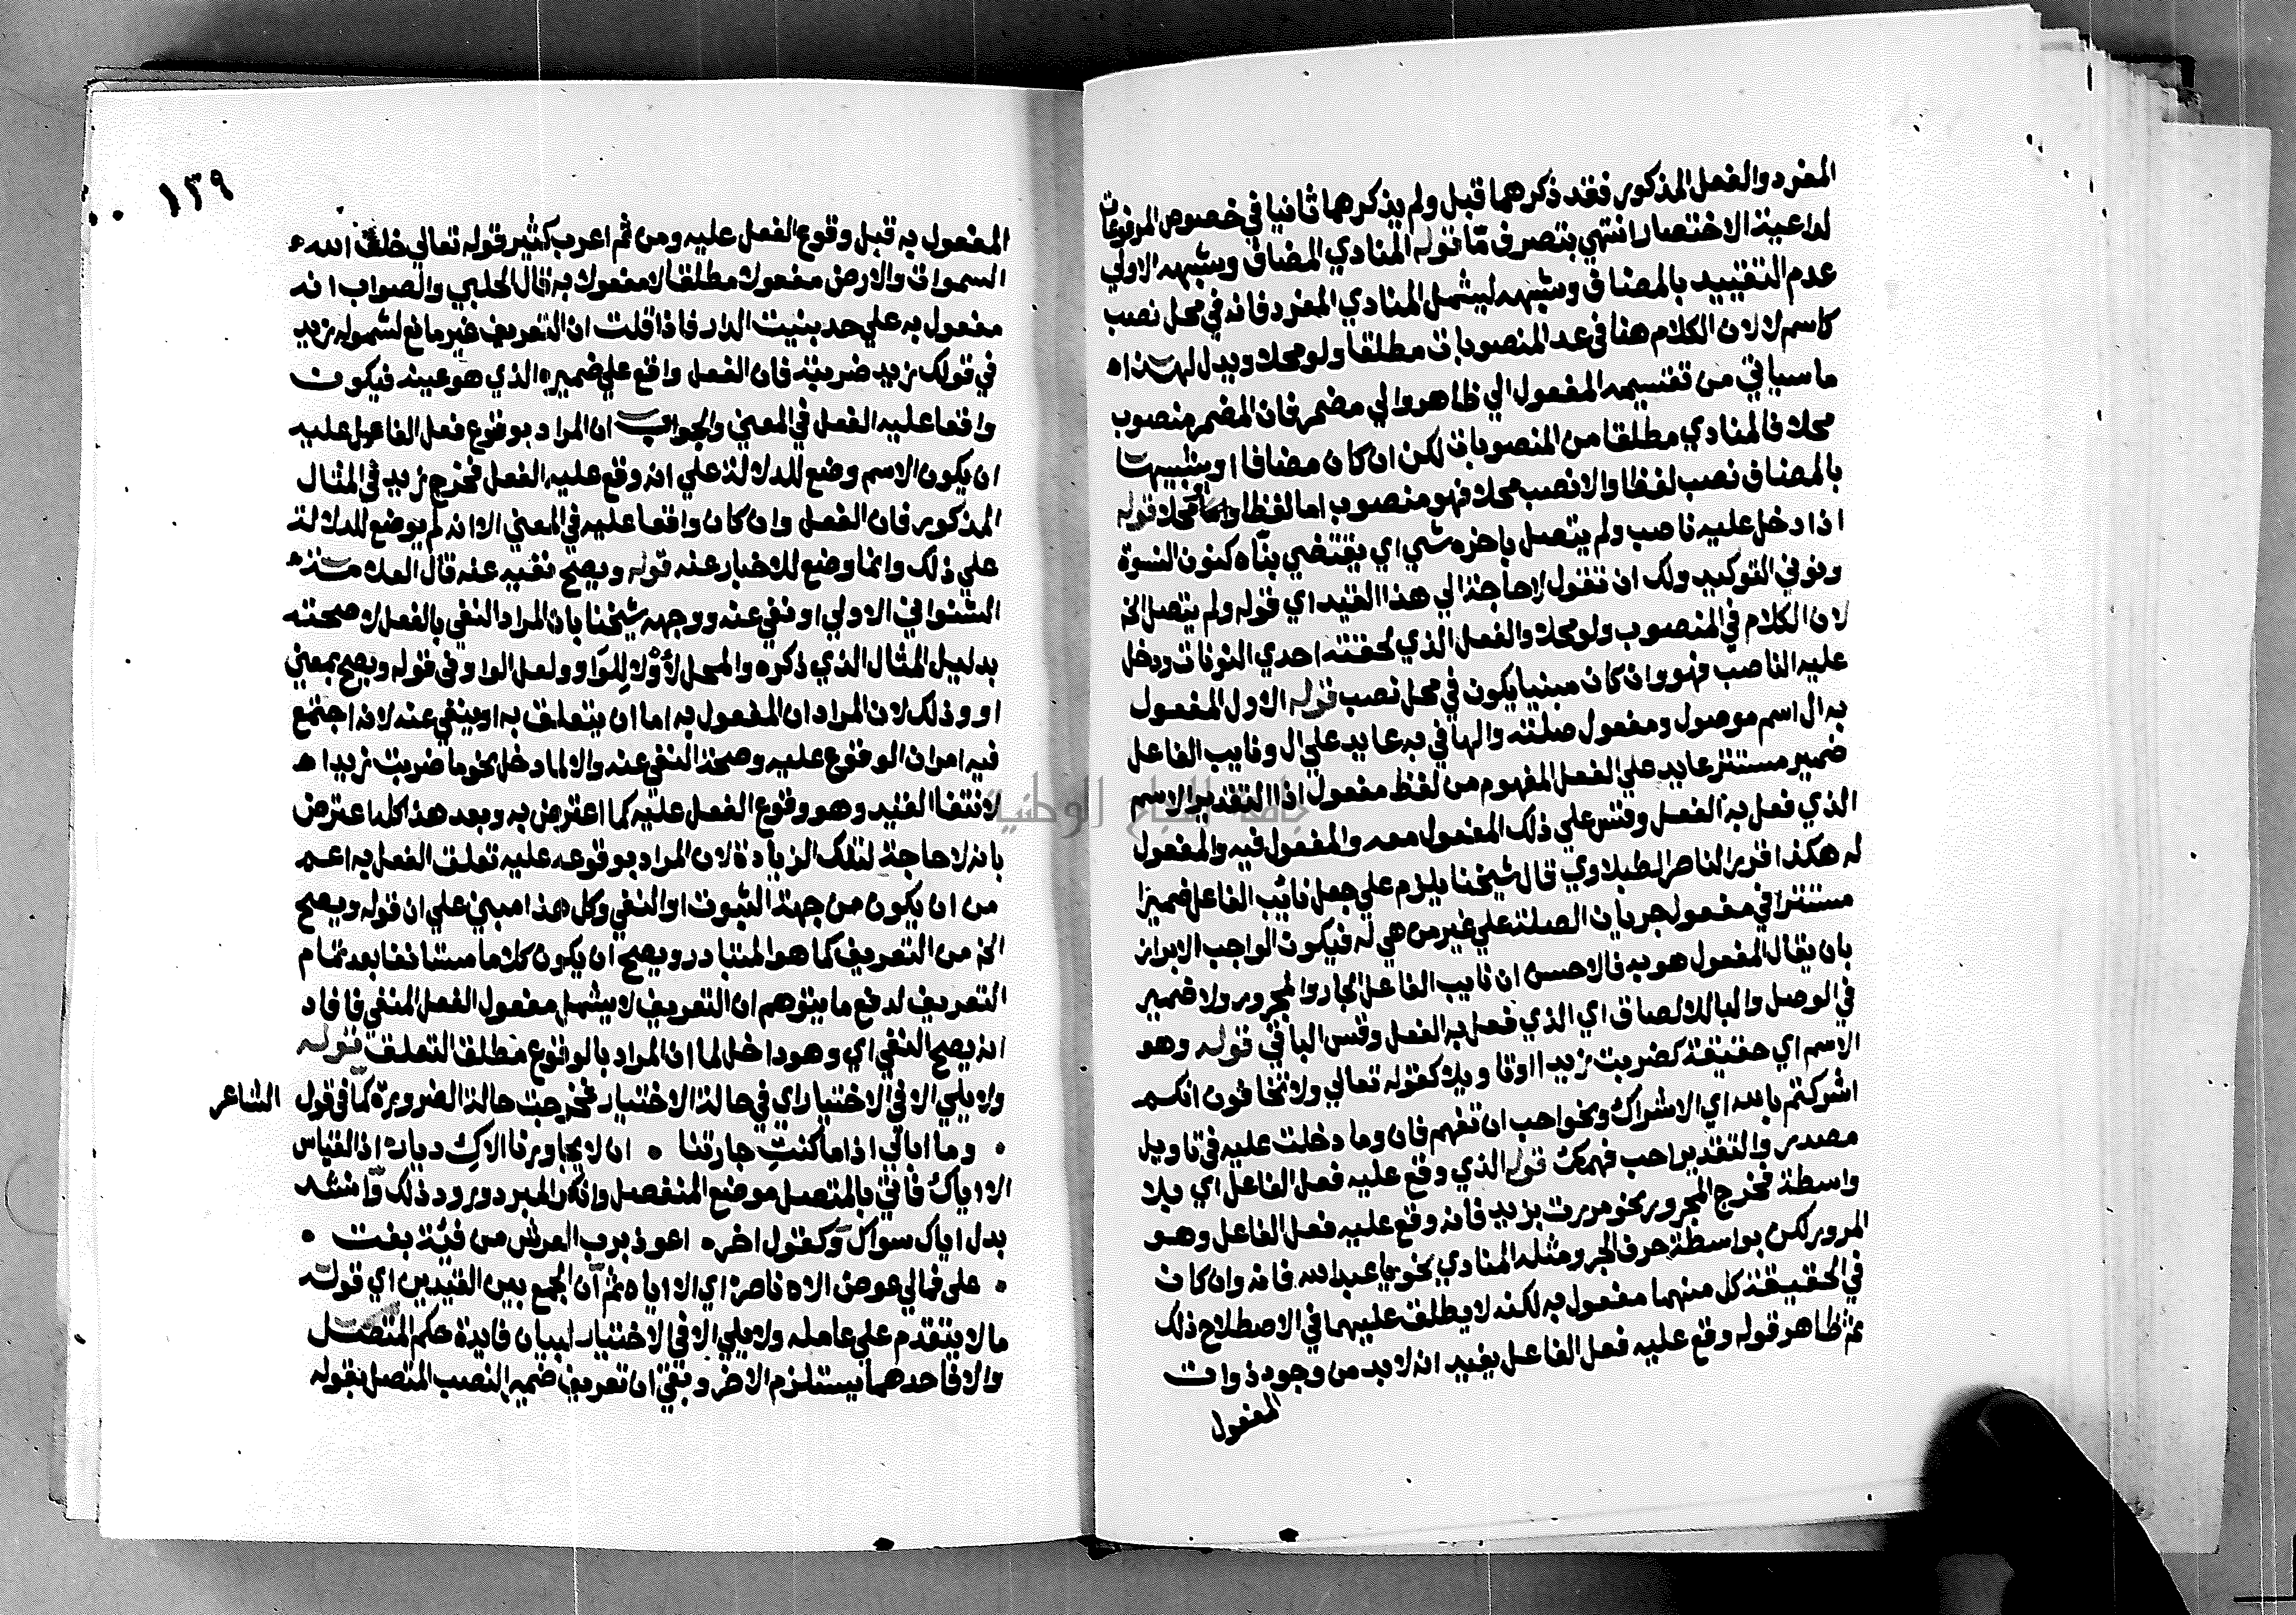 المفرد والفعل المذكور فقد ذكرهما قبل ولم يذكرهما ثانيا في خصوص المرفوعات
لداعية الاختصار انتهي بتصرف مّا قوله المنادي المضاف وشبهه الاولي
عدم التقييد بالمضاف وشبهه ليشمل المنادي المفرد فانه في محل نصب
كاسم لا لان الكلام هنا في عد المنصوبات مطلقا ولو محلا ويدل لهذا ه
ما سياتي من تقسيمه المفعول الي ظاهر والي مضمر فان المضمر منصوب
محلا فالمنادي مطلقا من المنصوبات لكن ان كان مضافا او شبيها
بالمضاف نصب لفظا والا نصب محلا فهو منصوب اما لفظا واما محلا قوله
اذا دخل عليه ناصب ولم يتصل باخره شي اي يقتضي بناه كنون النسوة
ونوني التوكيد ولك ان تقول لا حاجة الي هذا القيد اي قوله ولم يتصل الخ
لان الكلام في المنصوب ولو محلا والفعل الذي لحقته احدي النونات ودخل
عليه الناصب فهو وان كان مبنيا يكون في محل نصب قوله الاول المفعول
به ال اسم موصول ومفعول صلته والها في به عايد علي ال ونايب الفاعل
ضمير مستتر عايد علي الفعل المفهوم من لفظ مفعول اذا التقدير الاسم
الذي فعل به الفعل وقس علي ذلك المفعول معه والمفعول فيه والمفعول
له هكذا اقرر الناصر الطبلاوي قال شيخنا يلزم علي جعل نائب الفاعل ضميرا
مستترا في مفعول جريان الصلة علي غير من هي له فيكون الواجب الابراز
بان يقال المفعول هو به فالاحسن ان نايب الفاعل الجار والمجرور ولا ضمير
في الوصل والبا للالصاق اي الذي فعل به الفعل وقس الباقي قوله وهو
الاسم اي حقيقة كضربت زيدا او تاويلا كقوله تعالي ولا تخافون انكم
اشركتم بالله اي الاشراك ونحو احب ان تفهم فان وما دخلت عليه في تاويل
مصدر والتقدير احب فهمك قوله الذي وقع عليه فعل الفاعل اي بلا
واسطة فخرج المجرور نحو مررت بزيد فانه وقع عليه فعل الفاعل وهو
المرور لكن بواسطة حرف الجر ومثله المنادي نحو يا عبد الله فانه وان كان
في الحقيقة كل منهما مفعول به لكنه لا يطلق عليهما في الاصطلاح ذلك
ثم ظاهر قوله وقع عليه فعل الفاعل يفيد انه لا بد من وجود ذوات
المفعول
١٣٩
المفعول به قبل وقوع الفعل عليه ومن ثم اعرب كثير قوله تعالي خلق الله
السموات والارض مفعولا مطلقا لا مفعولا به قال الحلبي والصواب انه
مفعول به علي حد بنيت الدار فاذا قلت ان التعريف غير مانع لشموله زيد
في قولك زيد ضربته فان الفعل واقع علي ضميره الذي هو عينه فيكون
واقعا عليه الفعل في المعني والجواب ان المراد بوقوع فعل الفاعل عليه
ان يكون الاسم وضع للدلالة علي انه وقع عليه الفعل فخرج زيد في المثال
المذكور فان الفعل وان كان واقعا عليه في المعني الا انه لم يوضع للدلالة
علي ذلك وانما وضع للاخبار عنه قوله ويصح نفيه عنه قال العلامة
الشنواني الاولي او نفي عنه ووجهه شيخنا بان المراد النفي بالفعل لا صحته
بدليل المثال الذي ذكره والمحل لاولا للواو ولعل الواو في قوله ويصح بمعني
او وذلك لان المراد ان المفعول به اما ان يتعلق به او ينفي عنه لا انه اجتمع
فيه امران الوقوع عليه وصحة النفي عنه والا لما دخل نحو ما ضربت زيدا ه
لانتفا القيد وهو وقوع الفعل عليه كما اعترض به وبعد هذا كله اعترض
بانه لا حاجة لتلك الزيادة لان المراد بوقوعه عليه تعلق الفعل به اعم
من ان يكون من جهة الثبوت او النفي وكل هذا مبني علي ان قوله ويصح
الخ من التعريف كما هو المتبادر ويصح ان يكون كلاما مستانفا بعد تمام
التعريف لدفع ما يتوهم ان التعريف لا يشمل مفعول الفعل المنفي فافاد
انه يصح النفي اي وهو داخل لما ان المراد بالوقوع مطلق التعلق قوله
ولا يلي الا في الاختيار اي في حالة الاختيار فخرجت حالة الضرورة كما في قول الشاعر
وما ابالي اذا ما كنت جارتنا ه ان لا يجاورنا الاك ديار اذ القياس
الا اياك فاتي بالمتصل موضع المنفصل وانكر المبرد ورود ذلك وانشد
بدل اياك سواك وكقول اخر ه اعوذ برب العرش من فئة بغت ه
علي فمالي عوض الاه ناصر اي الا اياه ثم ان الجمع بين القيدين اي قوله
ما لا يتقدم علي عامله ولا يلي الا في الاختيار لبيان فايدة حكم المتصل
والا فاحدهما يستلزم الاخر وبقي ان تعريف ضمير النصب المتصل بقوله
جامعة النجاح الوطنية